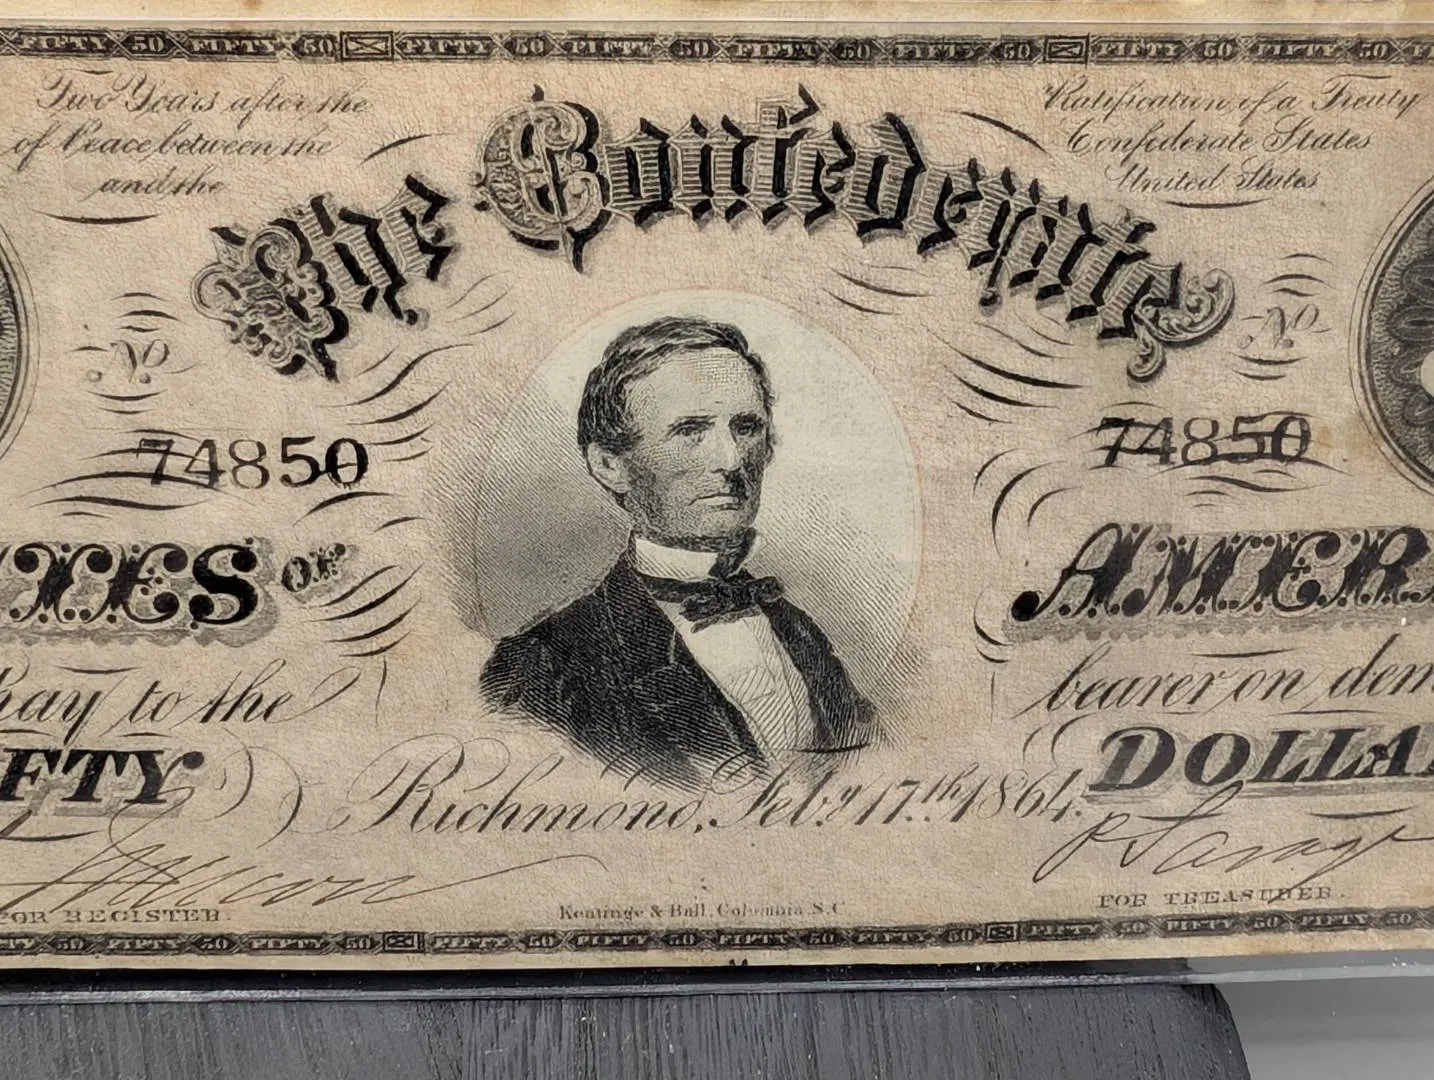 FIFTY 50 FIFTY 50 FIFTY 50 FIFTY 50 FIFTY 50 FIFTY 50 FIFTY 50 FIFTY 50
Two Years after the Ratification of a Treaty
of Peace between the Confederate States
and the United States
The Confederate
No No
74850 74850
TES OF AMER
pay to the bearer on dem
FTY DOLLA
Richmond, Feb.y 17.th 1864.
FOR REGISTER. FOR TREASURER.
Keatinge & Ball, Columbia S.C
50 FIFTY 50 FIFTY 50 FIFTY 50 FIFTY 50 FIFTY 50 FIFTY 50 FIFTY 50 FIFTY 50 FIFTY